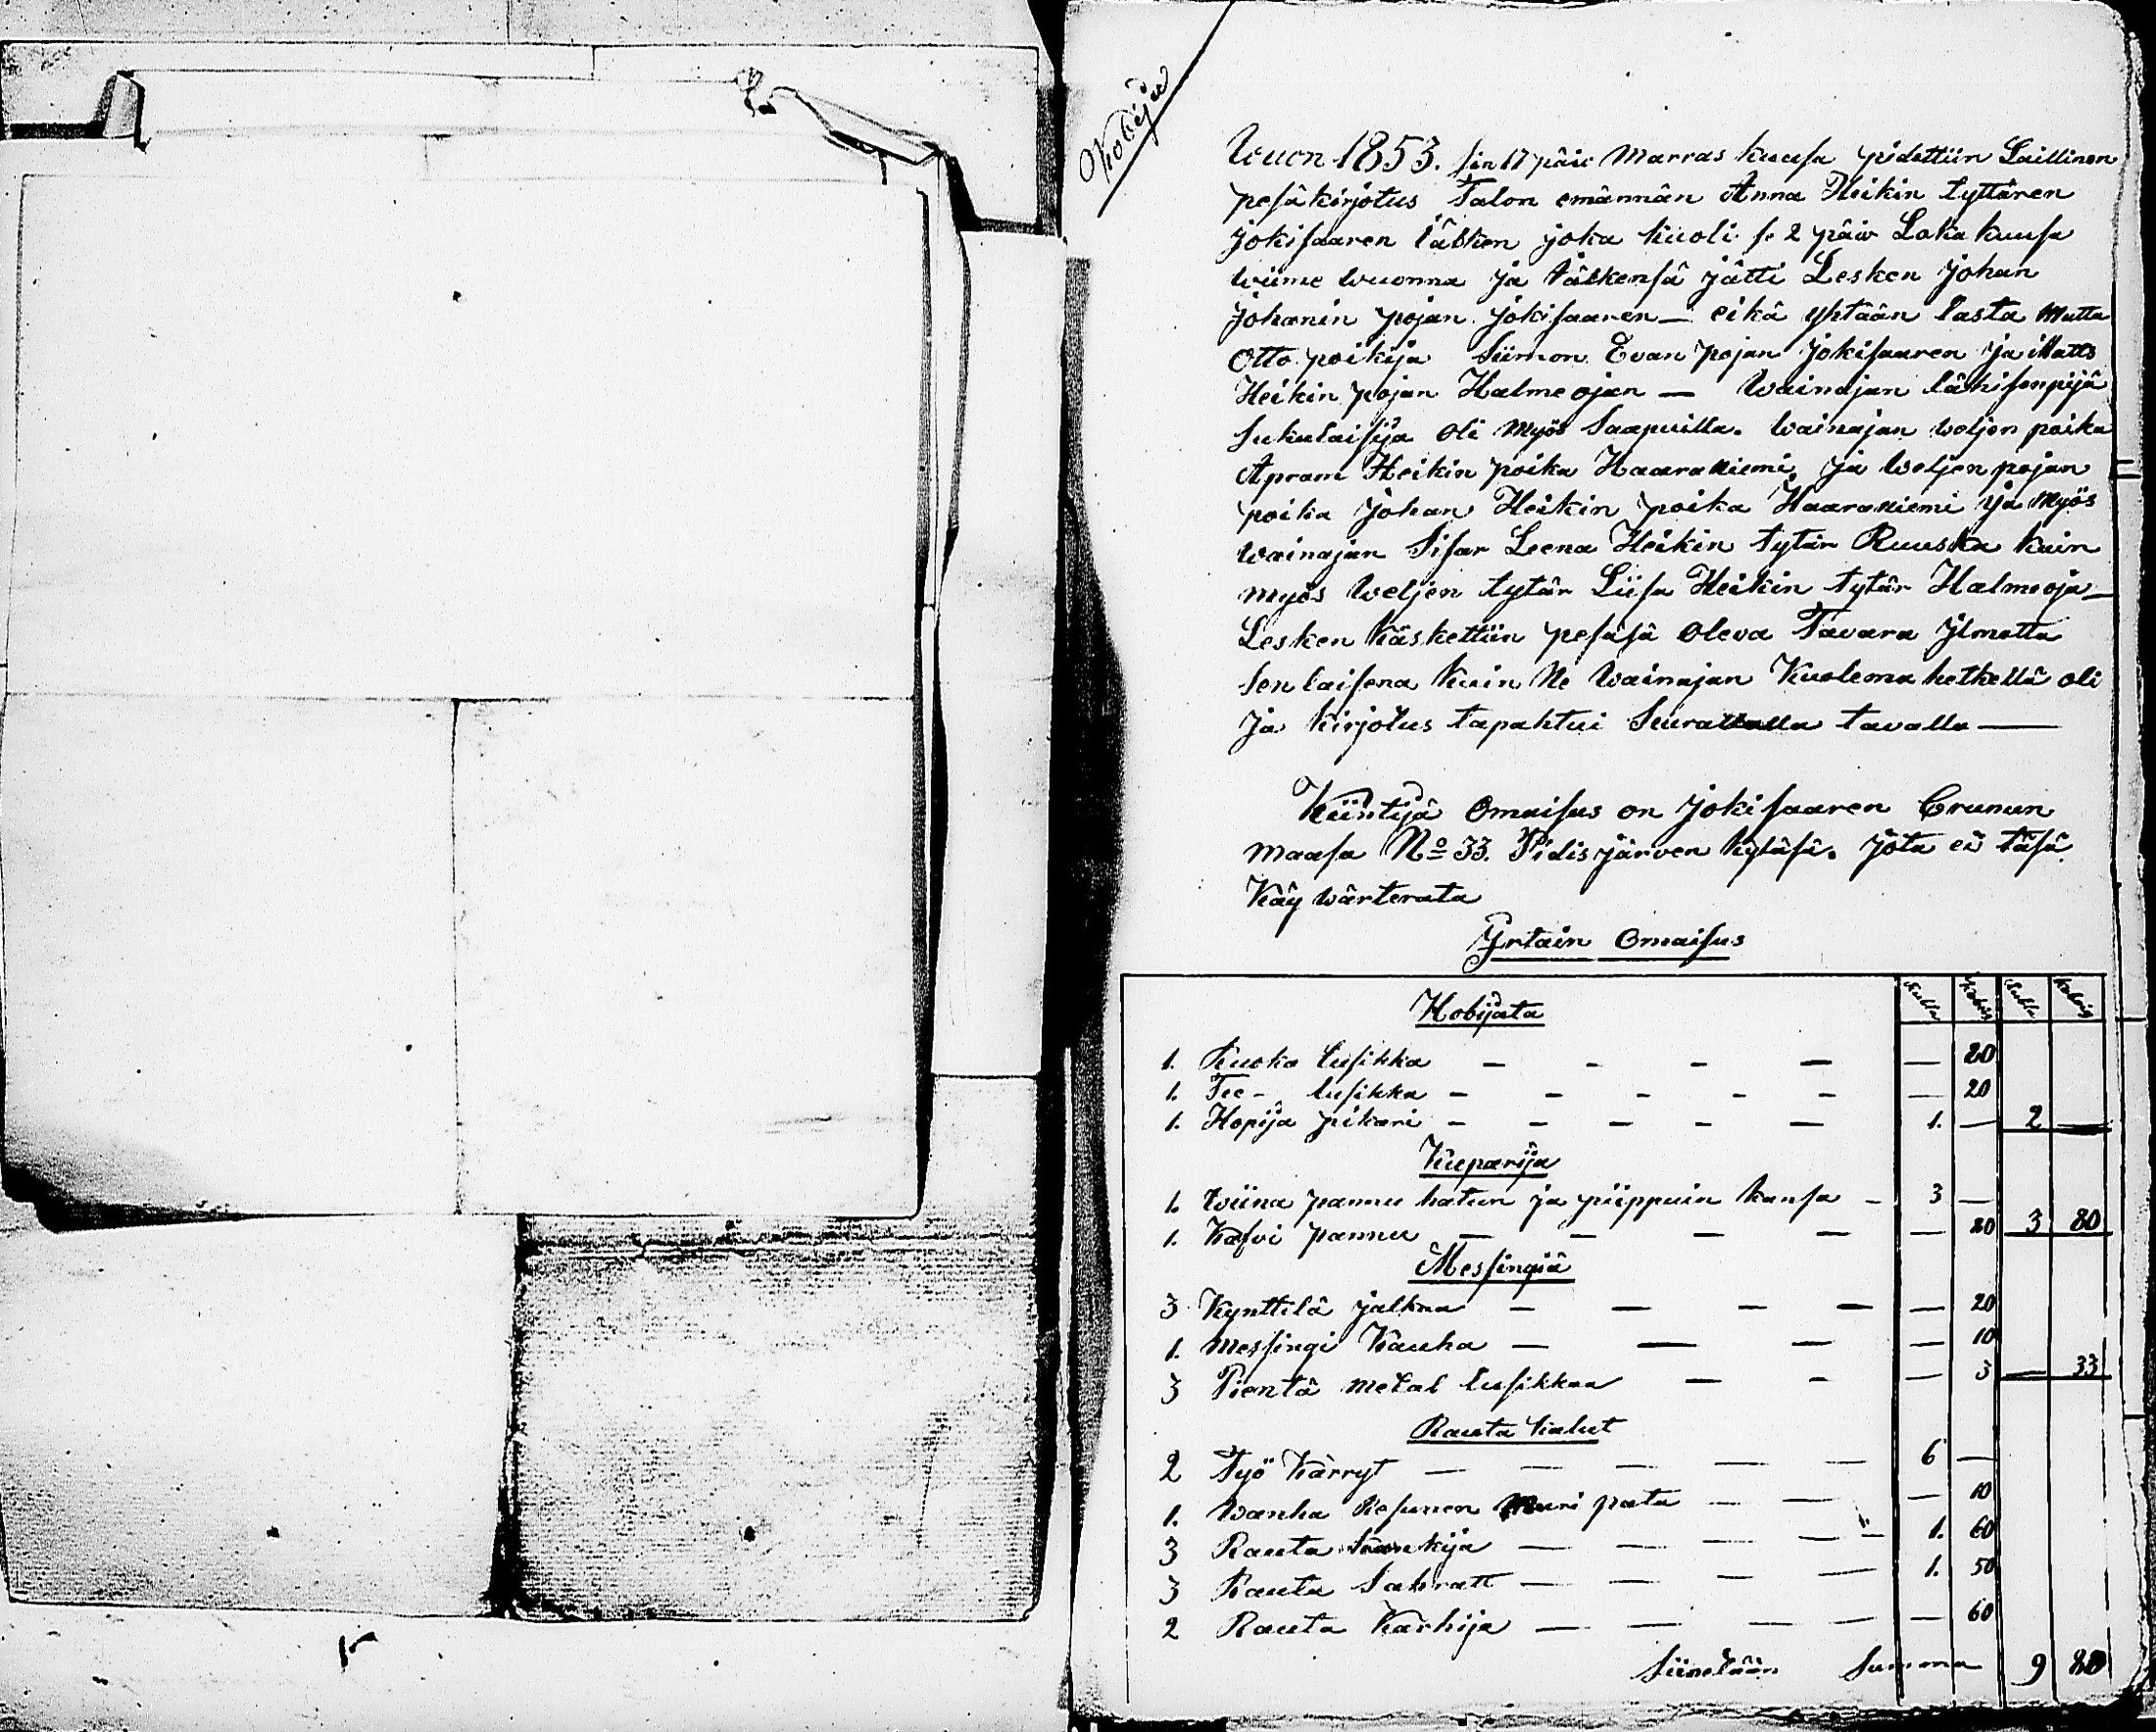 Kobija
Wuon 1853. sin 17 päiv Marras kuusa pidettiin Laillinen
pesäkirjotus Talon emännän Anna Heikin tyttären
Jokisaaren jälken joka kuoli s. 2 päiw Loka kuusa
wiime wuonna ja jälkensä jätti Lesken Johan
Johanin pojan Jokisaaren — eikä yhtään lasta Mutta
Otto poikija Siimon Evan pojan Jokisaaren ja Matts
Heikin pojan Halmeojan — Wainajan lähisenpijä
Sukulaisija oli Myös Saapuilla. Wainajan weljen poika
Apram Heikin poika Haaraniemi ja Weljen pojan
poika Johan Heikin poika Haaraniemi ja Myös
wainajan Sisar Leena Heikin tytär Ruuska kuin
myös Weljen tytär Liisa Heikin tytär Halmeoja —
Lesken Käskettiin pesäsä oleva Tavara Jlmotta
Sen laisena kuin Ne Wainajan Kuolema hetkellä oli
Ja kirjotus tapahtui Seuravalla tavalla —
Kiintijä Omaisus on Jokisaaren Crunun
maasa No 33. Pidisjärven Kyläsä. Jota ei täsä
Käy wärterata
Jrtain Omaisus
Rubla Kobik Rubla Kobik
Hobijata
1. Ruoka lusikka — — — — — 80
1. Tee- lusikka — — — — — — 20
1. Hopija pikari — — — — — 1. — 2 —
Kuparija
1. Wiina pannu hatun ja piippuin kansa — 3 —
1. Kafvi pannu — — — — — 80 3 80
Messingiä
3 Kynttilä jalkaa — — — — — 20
1. Messingi Kauha — — — — 10
3 Pientä metal lusikkaa — — — 3 — 33
Rauta kalut
2 Työ Kärryt — — — — — 6 —
1. Wanha Muuri pata — — — 10
3 Rauta Kankija — — — — 1. 60
3 Rauta Sahratt — — — — 1. 50
2 Rauta Karhija — — — — — 60
Siirretään Summa 9 80